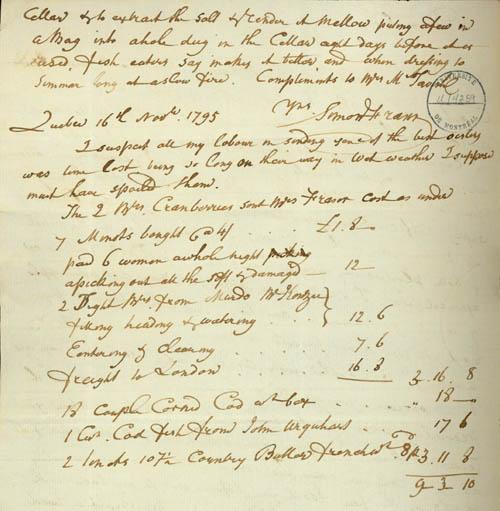 Cellar & to extract the salt & render it Mellow putting a few in
a Bag into a hole dug in the Cellar eight days before it is
used. fish eaters say makes it better, and when dressing to
Simmer long at a slow fire. Compliments to Mrs M Tavish
Yrs
Simon Fraser
Quebec 16th Novr. 1795
I suspect all my labour in sending some of the best oysters
was time lost being so long on their way in wet weather I suppose
must have spoiled them.
The 2 Brs. Cranberries sent Mrs Fraser cost as under
7 Minots bought @ 4/ £1.8
paid 6 women a whole night picking
a picking out all the soft & damaged 12
2 Tight Brs from Murdo McKenzie
filling heading & watering 12.6
Entering & Clearing 7.6
freight to London 16.8 3.16.8
18 Couple Corned Cod wt box " 18
1 Cwt. Cod fish from John Urquhart 17 6
2 107½ Country Butter 8d 3.11 8
9 3 10
DE MONTRÉAL